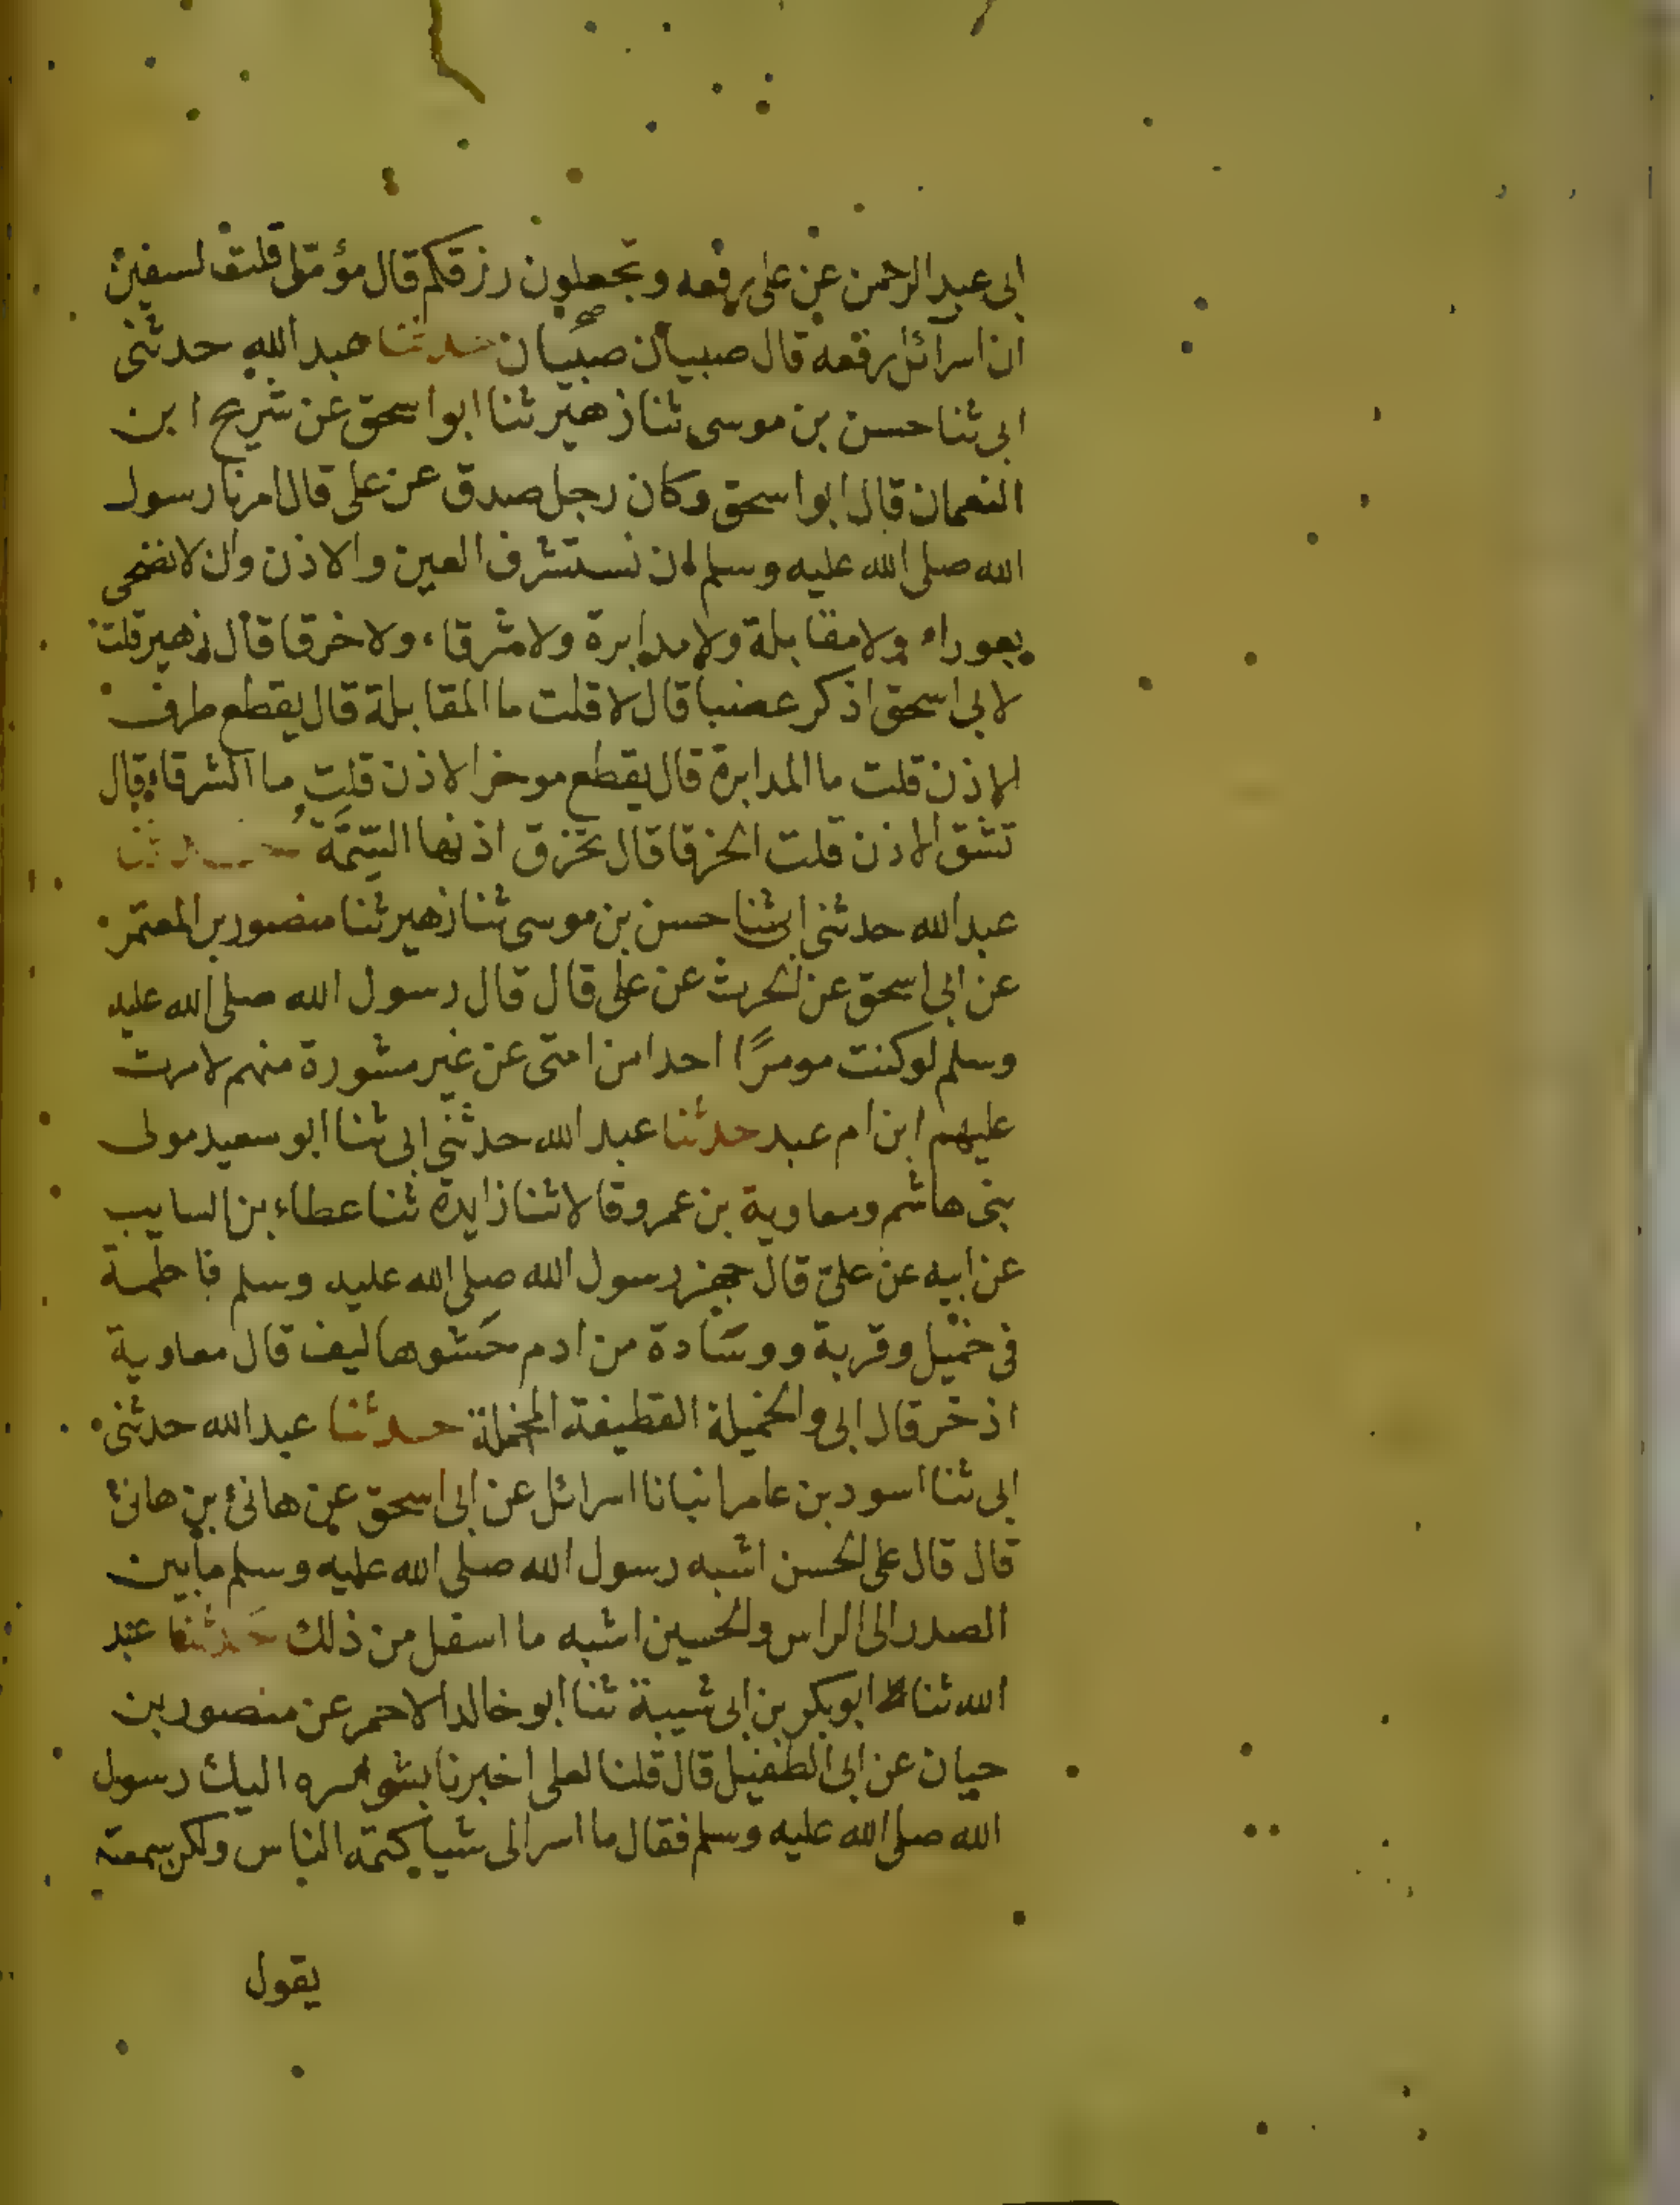 ابى عبد الرحمن عن على رفعه وتجعلون رزقكم قال مؤمل قلت لسفين
ان اسرائل رفعه قال صبيان صبيان حدثنا عبد الله حدثنى
ابى ثنا حسن بن موسى ثنا زهير ثنا ابو اسحق عن شريح ابن
النعمان قال ابو اسحق وكان رجل صدق عن على قال امرنا رسول
الله صلى الله عليه وسلم ان نستشرف العين والاذن وان لا نضحى
بعوراء ولا مقابلة ولا مدابرة ولا شرقاء ولا خرقا قال زهير قلت
لابى اسحق اذكر عضبا قال لا قلت ما المقابلة قال يقطع طرف
الاذن قلت ما المدابرة قال يقطع موخر الاذن قلت ما الشرقاء قال
تشق الاذن قلت الخرقا قال تخرق اذنها السمة حدثنا
عبد الله حدثنى ابى ثنا حسن بن موسى ثنا زهير ثنا منصور بن المعتمر
عن ابى اسحق عن الحرث عن على قال قال رسول الله صلى الله عليه
وسلم لو كنت مومرًا احدا من امتى عن غير مشورة منهم لامرت
عليهم ابن ام عبد حدثنا عبد الله حدثنى ابى ثنا ابو سعيد مولى
بنى هاشم ومعاوية بن عمرو قالا ثنا زايدة ثنا عطاء بن السايب
عن ابيه عن على قال جهز رسول الله صلى الله عليه وسلم فاطمة
فى خميل وقربة ووسادة من ادم محشوها ليف قال معاوية
اذخر قال ابى والخميلة القطيفة المخملة حدثنا عبد الله حدثنى
ابى ثنا اسود بن عامر انبانا اسرائل عن ابى اسحق عن هانئ بن هانئ
قال قال على الحسن اشبه رسول الله صلى الله عليه وسلم ما بين
الصدر الى الراس والحسين اشبه ما اسفل من ذلك حدثنا عبد
الله ثنا ابو بكر بن ابى شيبة ثنا ابو خالد الاحمر عن منصور بن
حيان عن ابى الطفيل قال قلنا لعلى اخبرنا بشو اسره اليك رسول
الله صلى الله عليه وسلم فقال ما اسر الى شيا كتمه الناس ولكن سمعته
يقول